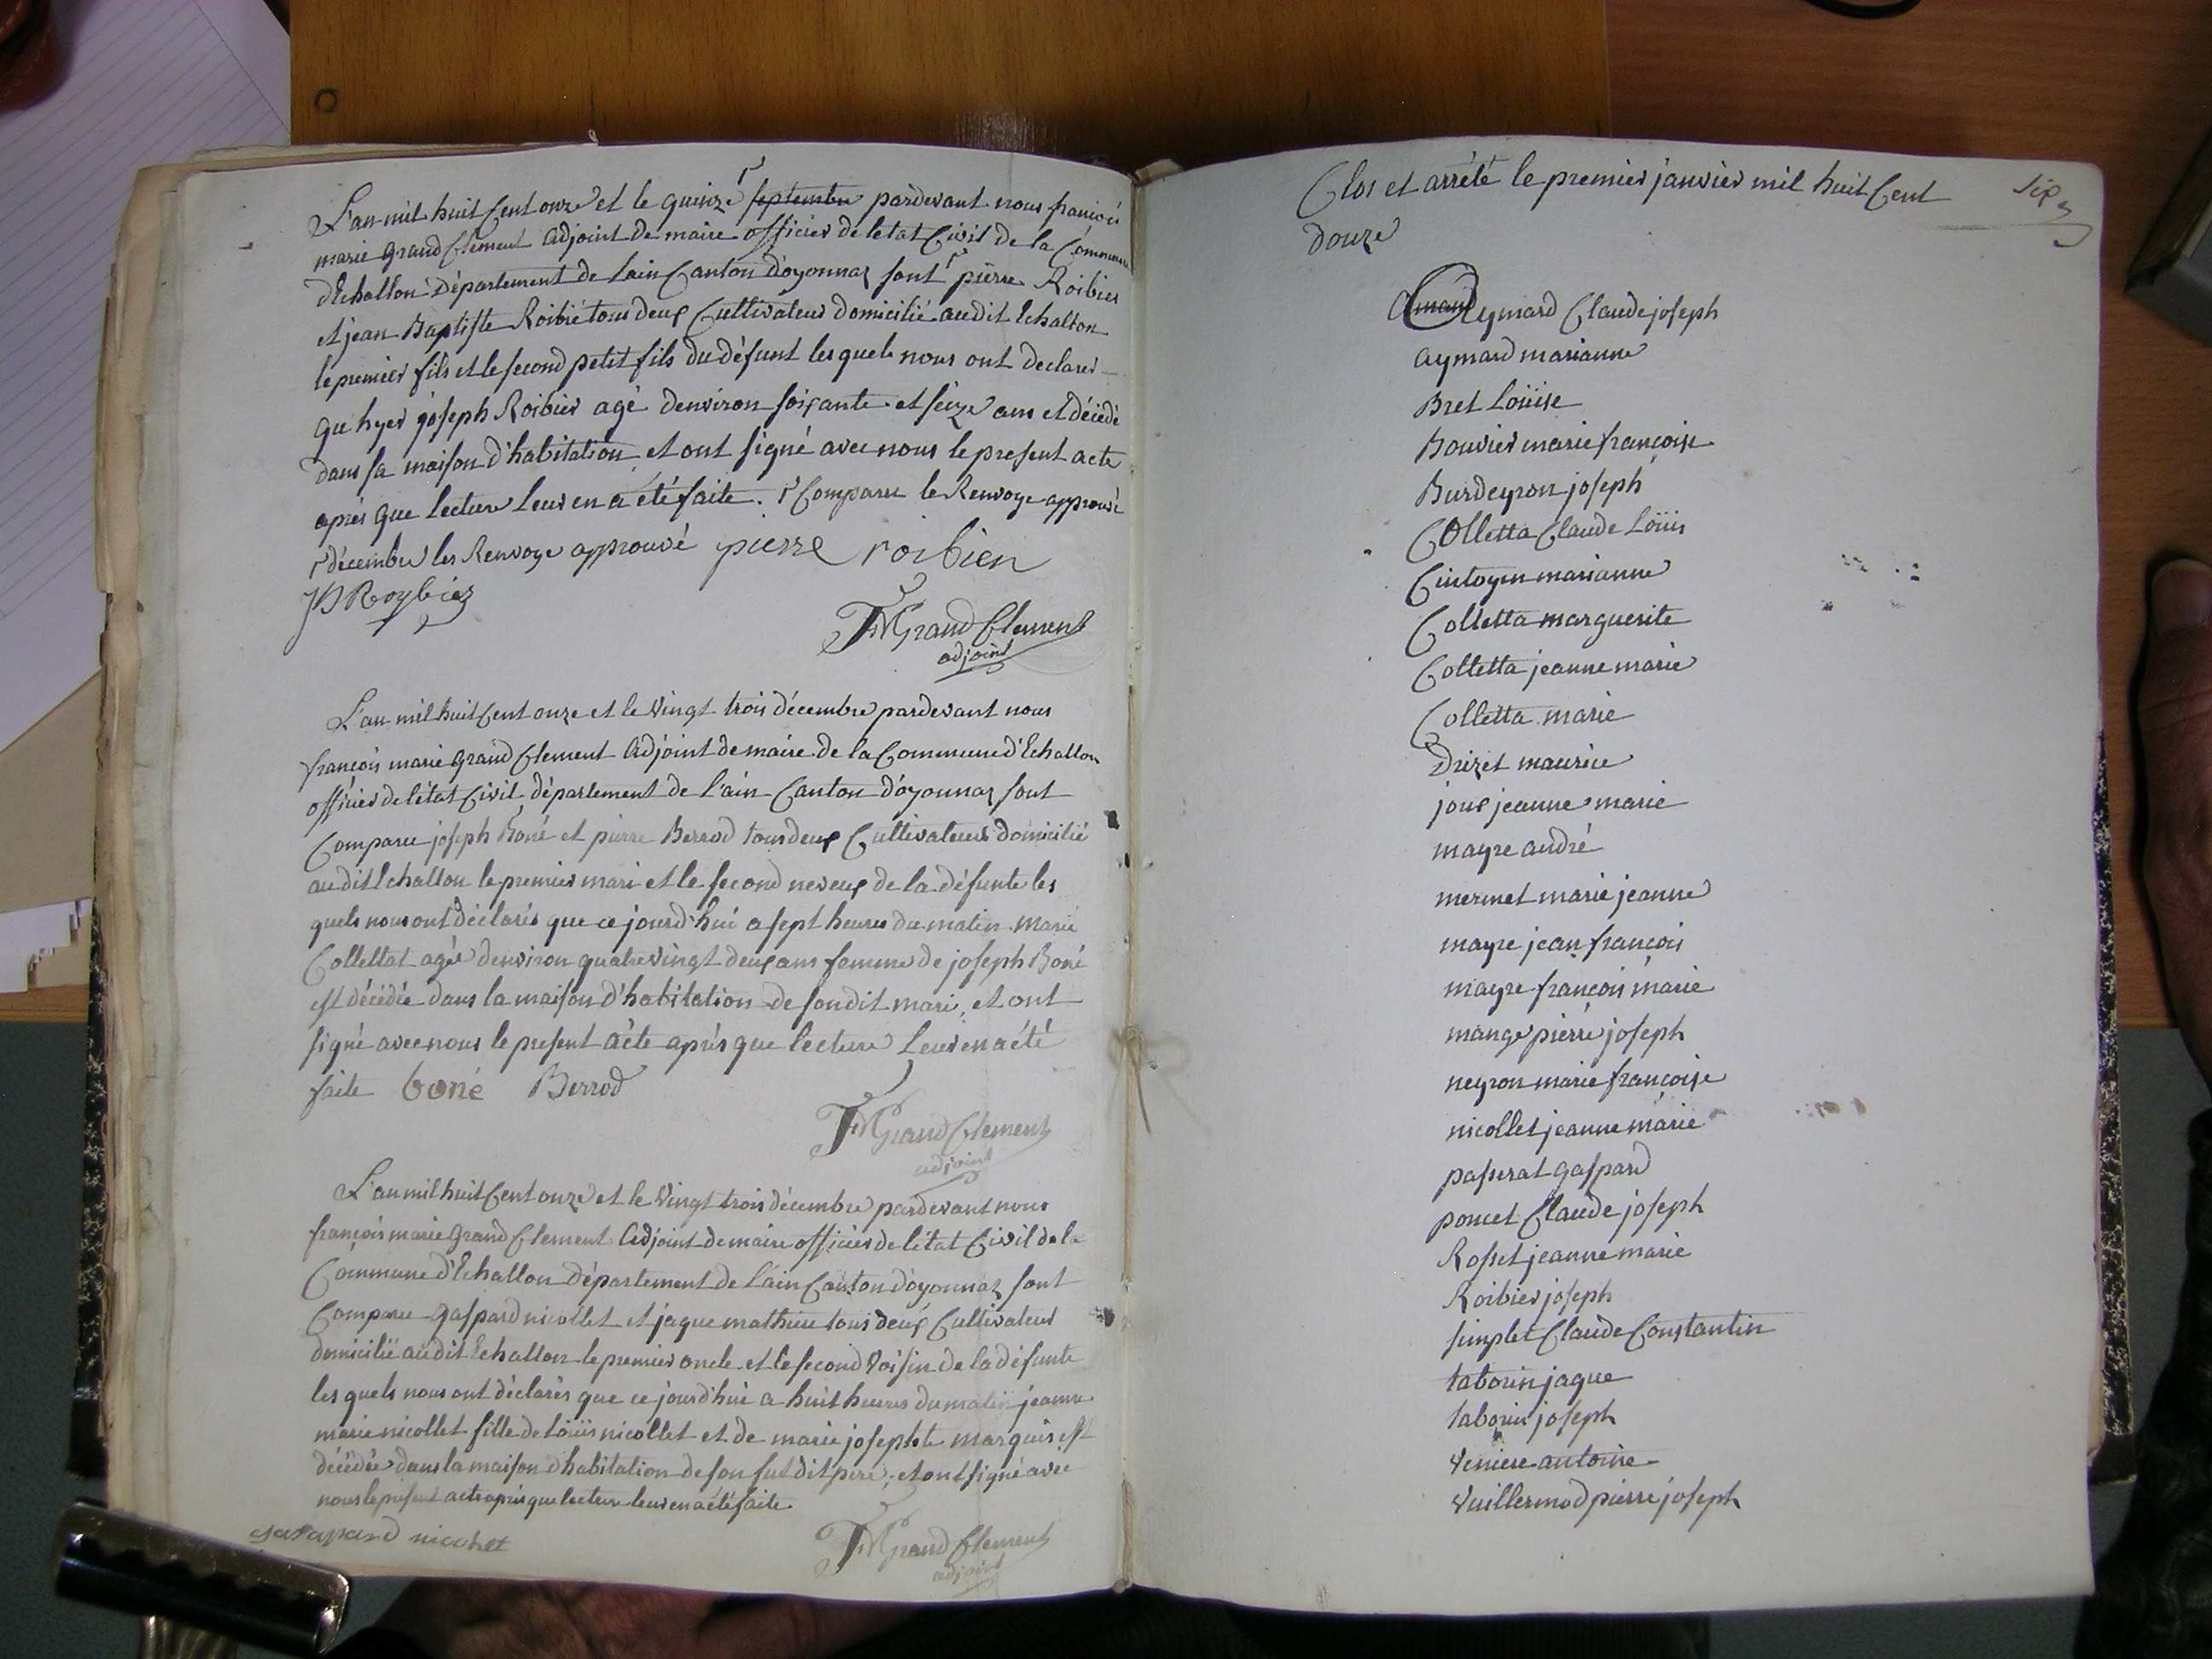 L'an mil huit Cent onze et le quinze septembre pardevant nous françois
marie grand Clement adjoint de maire officier de letat Civil de la Commune
d'Echallon Département de Lain Canton d'oyonnaz sont pierre Roibier
et jean Baptiste Roibié tous deux Cultivateur domicilié audit Echallon
le premier fils et le second petit fils du défunt lesquels nous ont declarés
qu hyer joseph Roibier agé denviron soixante et seize ans et décédé
dans sa maison d'habitation et ont signé avec nous le present acte
aprés que lecture leur en a été faite. Comparu le Renvoye approuvé
décembre les Renvoye approuvé pierre roibien
JB Roybier
FM Grand Clement
adjoint
L'an mil huit Cent onze et le vingt trois décembre pardevant nous
françois marie grand Clement adjoint de maire de la Commune d'Echallon
officier de l'état Civil département de l'ain Canton d'oyonnaz sont
Comparu joseph Boné et pierre Berrod tous deux Cultivateurs domicilié
audit Echallon le premier mari et le second neveux de la défunte les
quels nous ont déclarés que ce jourd'hui a sept heures du matin marie
Collettat agée denviron quatrevingt deux ans femme de joseph Boné
est décédée dans la maison d'habitation de son dit mari, et ont
signé avec nous le present acte aprés que lecture Leur en a été
faite boné Berrod
FM Grand Clement
adjoint
L'an mil huit Cent onze et le vingt trois décembre pardevant nous
françois marie grand Clement adjoint de maire officier de l'état Civil de la
Commune d'Echallon Département de Lain Canton d'oyonnaz sont
Comparu gaspard nicollet et jaque mathieu tous deux Cultivateur
domicilié audit Echallon le premier oncle et le second voisin de la défunte
les quels nous ont déclarés que ce jourd'hui a huit heures du matin jeanne
marie nicollet fille de Loüis nicollet et de marie josephte marquis est
décédée dans la maison d'habitation de son sus dit pere, et ont signé avec
nous le present acte aprés que lecture leur en a été faite
gasapard nicolet
FM Grand Clement
adjoint
Clos et arrété le premier janvier mil huit Cent
douze
six
Aymard Claude joseph
aymard marianne
Bret Loüise
Bouvier marie françoise
Burdeyron joseph
Colletta Claude Loüis
Cintoyen marianne
Colletta marguerite
Colletta jeanne marie
Colletta marie
Drizet maurice
joux jeanne marie
mayre andré
mermet marie jeanne
mayre jean françois
mayre françois marie
mange pierre joseph
neyron marie françoise
nicollet jeanne marie
passerat gaspard
poncet Claude joseph
Rosset jeanne marie
Roibier joseph
simplet Claude Constantin
tabourin jaque
tabourin joseph
Veniere antoine
Vuillermod pierre joseph